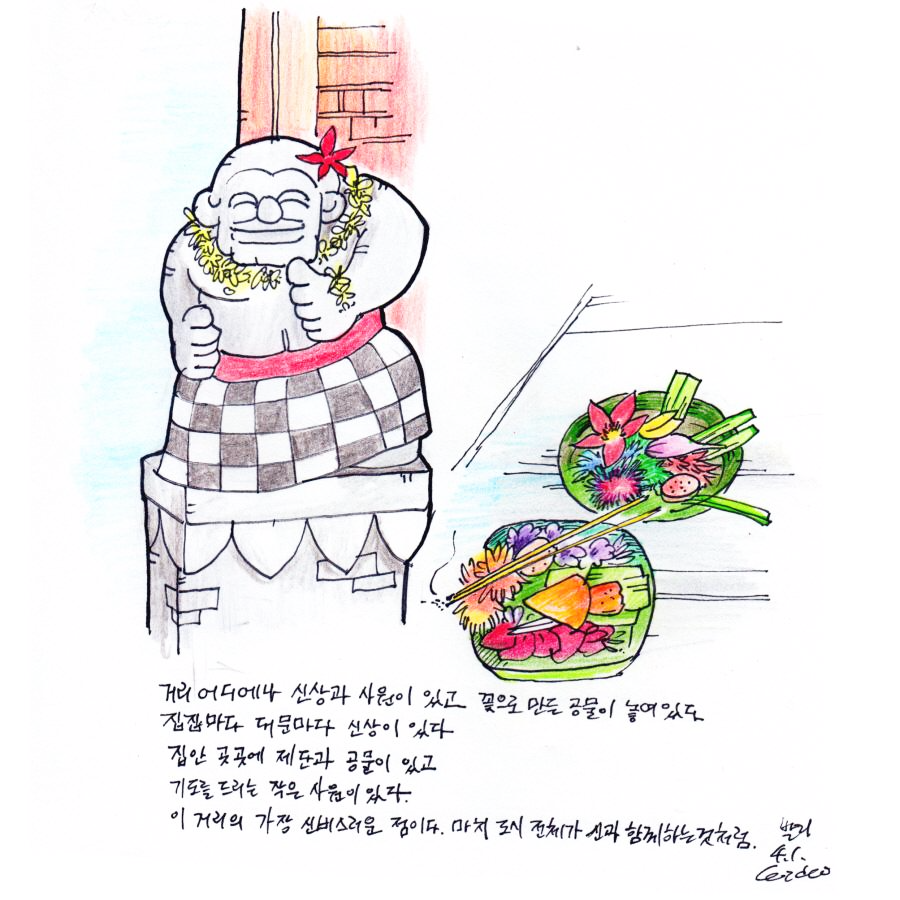 거리 어디에나 신상과 사원이 있고 꽃으로 만든 공물이 놓여있다
집집마다 대문마다 신상이 있다
집안 곳곳에 제단과 공물이 있고
기도를 드리는 작은 사원이 있다.
이 거리의 가장 신비스러운 점이다. 마치 도시 전체가 신과 함께하는것처럼.
발리
4.1.